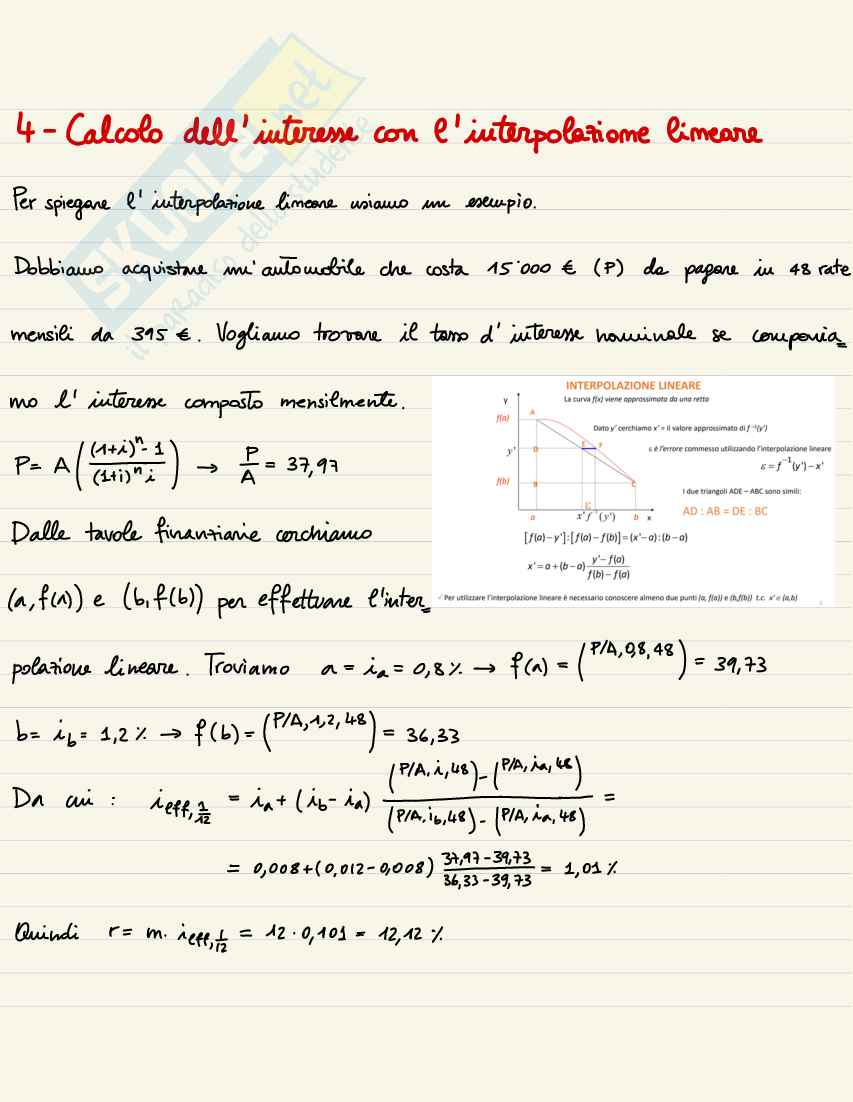 4 - Calcolo dell'interesse con l'interpolazione lineare
Per spiegare l'interpolazione lineare usiamo un esempio.
Dobbiamo acquistare un'automobile che costa 15'000 € (P) da pagare in 48 rate
mensili da 395 €. Vogliamo trovare il tasso d'interesse nominale se componia=
mo l'interesse composto mensilmente.
P = A ( (1+i)^n - 1 / (1+i)^n i ) → P/A = 37,97
Dalle tavole finanziarie cerchiamo
(a, f(a)) e (b, f(b)) per effettuare l'inter=
INTERPOLAZIONE LINEARE
La curva f(x) viene approssimata da una retta
y
f(a)
A
Dato y' cerchiamo x' = il valore approssimato di f ⁻¹(y')
y'
D
E
F
ε è l'errore commesso utilizzando l'interpolazione lineare
ε = f⁻¹(y') - x'
f(b)
B
C
I due triangoli ADE – ABC sono simili:
AD : AB = DE : BC
ε
a
x' f⁻¹(y')
b
x
[f(a) - y'] : [f(a) - f(b)] = (x' - a) : (b - a)
x' = a + (b - a) y' - f(a) / f(b) - f(a)
✓ Per utilizzare l'interpolazione lineare è necessario conoscere almeno due punti (a, f(a)) e (b,f(b)) t.c. x' ∈ (a,b)
polazione lineare. Troviamo a = i_a = 0,8 % → f(a) = (P/A, 0,8, 48) = 39,73
b = i_b = 1,2 % → f(b) = (P/A, 1,2, 48) = 36,33
Da cui : i_eff,1/12 = i_a + (i_b - i_a) (P/A, i, 48) - (P/A, i_a, 48) / (P/A, i_b, 48) - (P/A, i_a, 48) =
= 0,008 + (0,012 - 0,008) 37,97 - 39,73 / 36,33 - 39,73 = 1,01 %
Quindi r = m. i_eff,1/12 = 12 · 0,101 = 12,12 %
SKUOLA.net
il paradiso dello studente